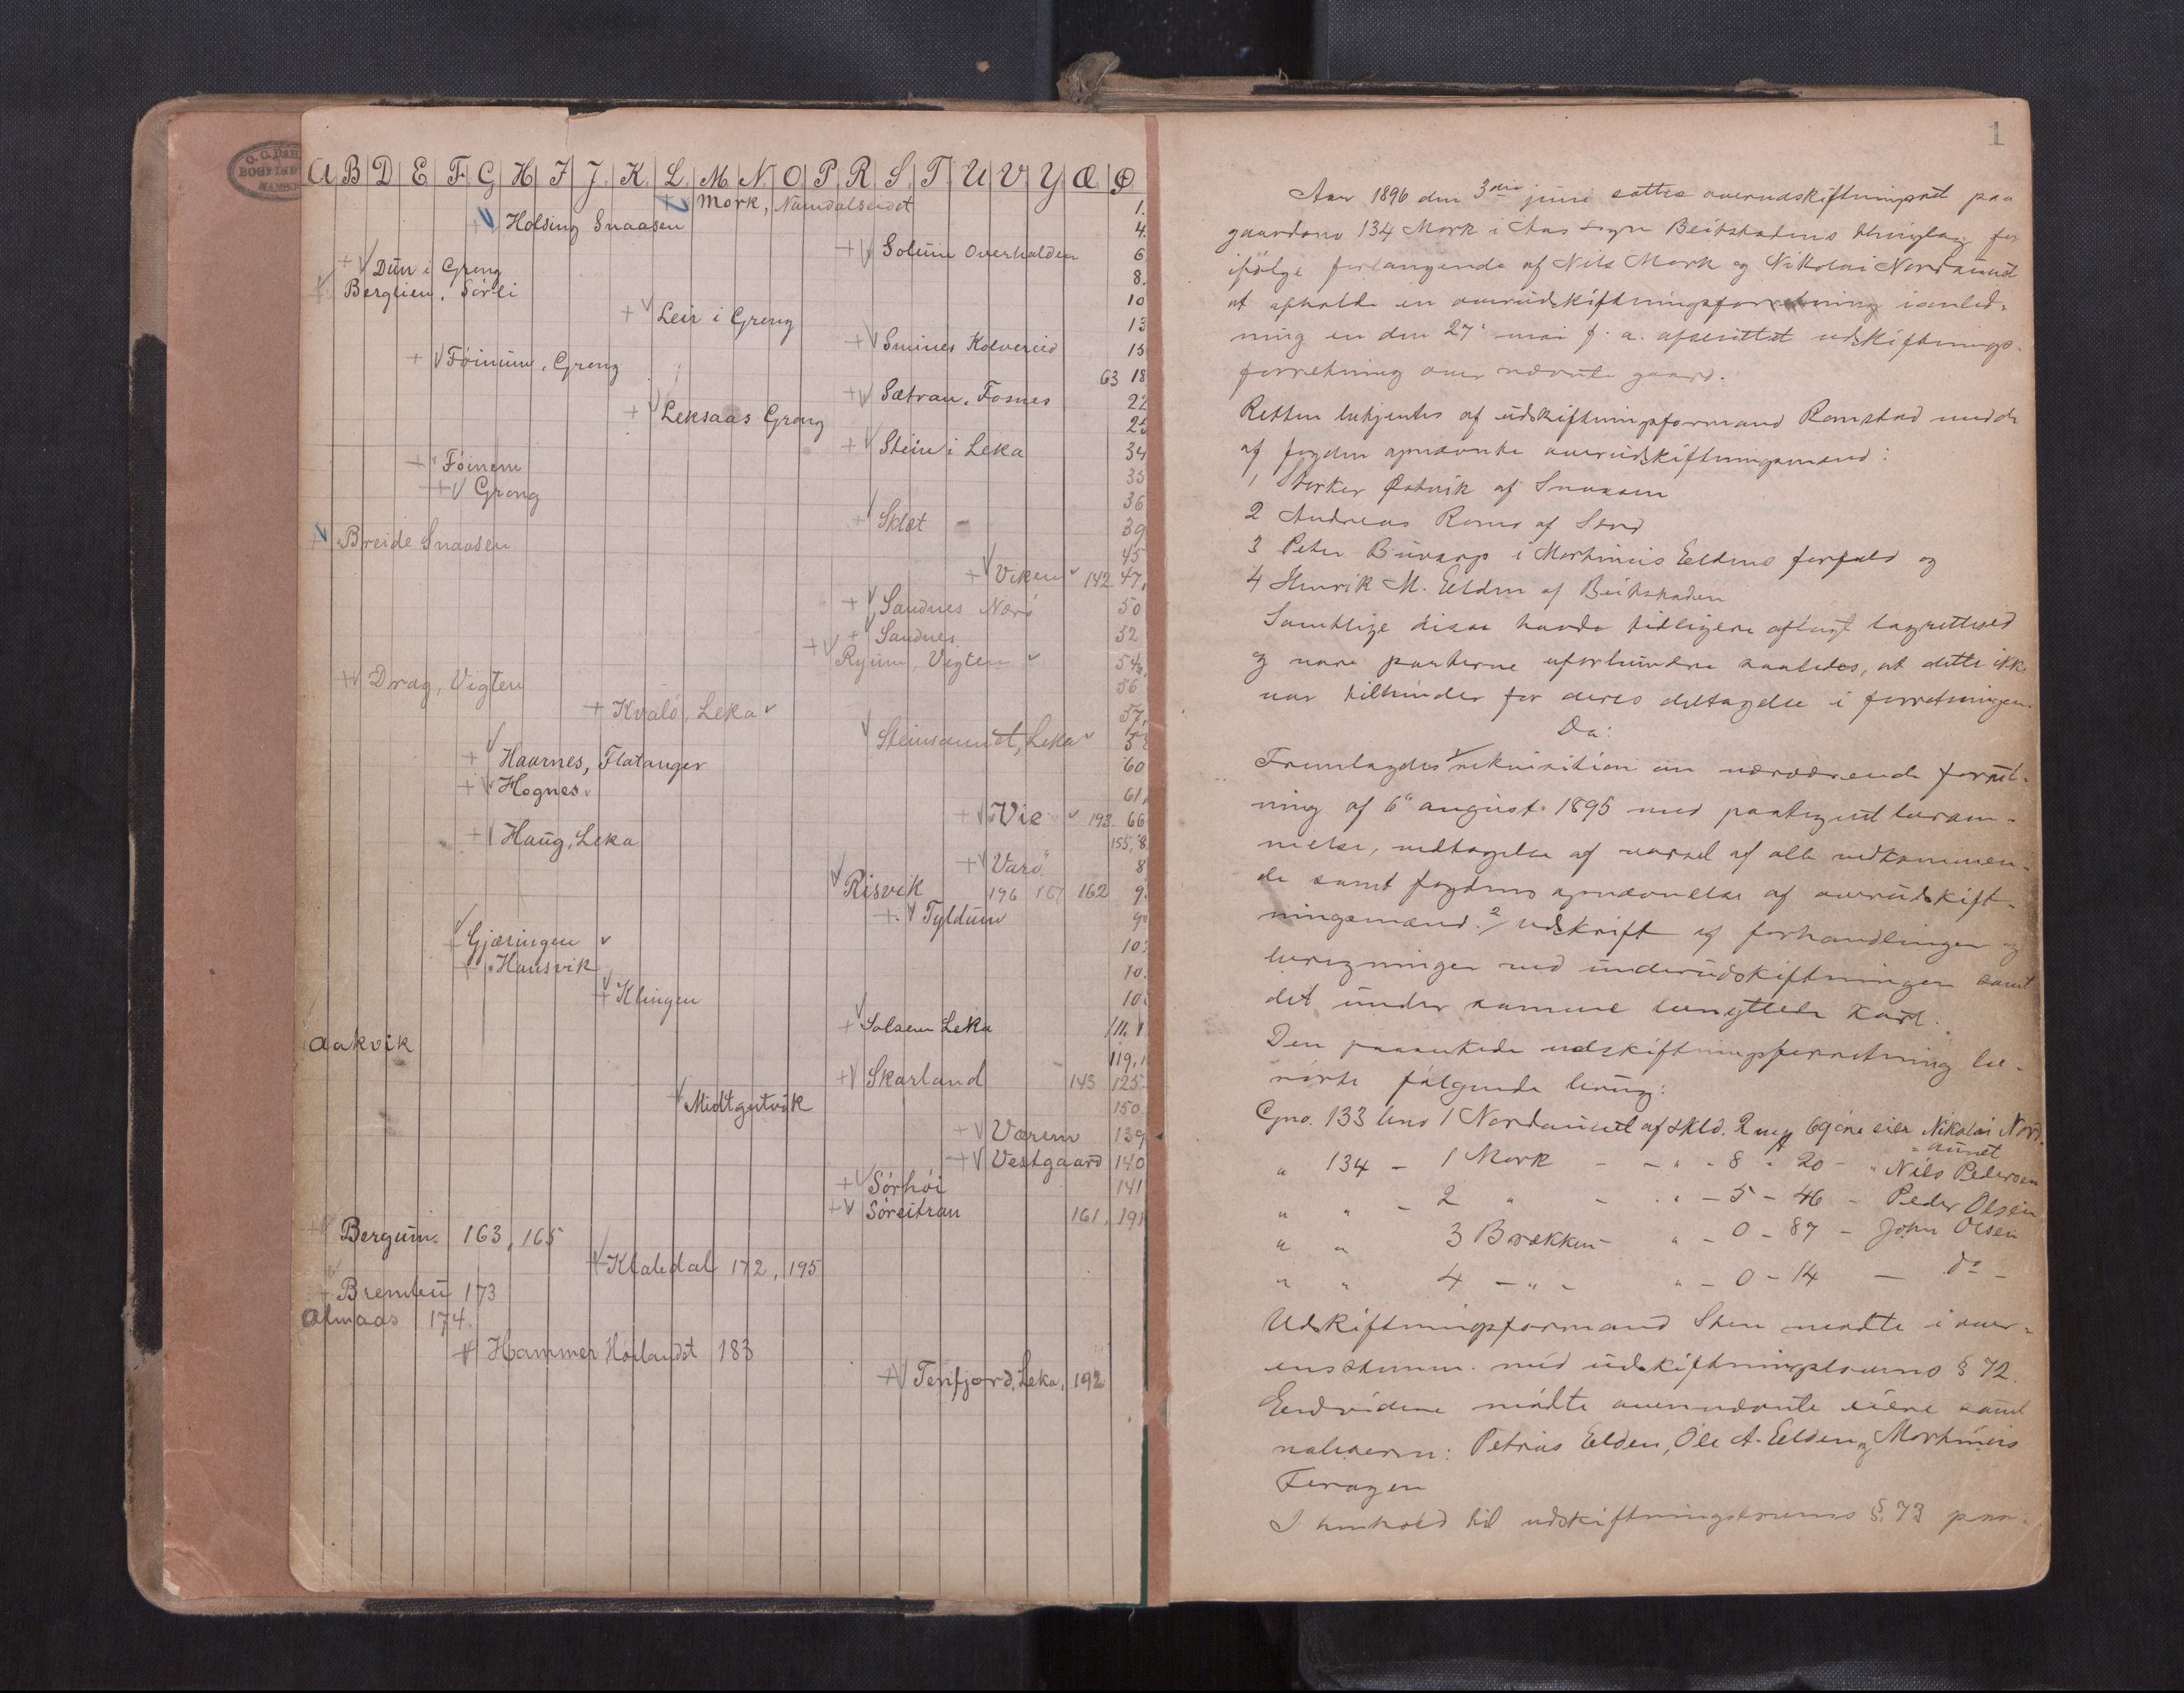 A B D E F G H I J K L M N O P R S T U V Y Æ Ø
Mork, Namdalseidet 1.
Holsing Snaasen 4.
Solum Overhalden 6
Dun i Grong 8.
Berglien, Sørli 10
Leir i Grong 13
Smines Kolvereid 15
Føinum, Grong 63 18
Sætran, Fosnes 22
Leksaas Grong 25
Stein i Leka 34
Føinem 35
Grong 36
Sklet 39
Breide Snaasen 45
Viken 142. 47,
Sandnes Nærø 50
Sandnes 52
Ryum, Vigten 54
Drag, Vigten 56
Kvalø, Leka 57,
Steinsunnet, Leka
Haarnes, Flatanger 60
Hognes 61,
Vie 193. 66
Haug, Leka 155, 8
Varø 8
Risvik 196 167 162 9
Tyldum 9
Gjæringen 10
Hansvik 10.
Klingen 10
Solsem Leka 111. 1
Aakvik 119, 1
Skarland 143 125
Midtgutvik 150
Værem 139
Vestgaard 140
Sørhøi 141
Søreitran 161, 191
Bergum. 163, 165
Klakdal 172, 195
Brembu 173
Almaas 174.
Hammer Høilandet 183
Tenfjord, Leka, 192
1
Aar 1896 den 3die juni sattes overudskiftningsret paa
gaardene 134 Mork i Aas sogn Beitstadens thinglag for
ifølge forlangende af Nils Mork og Nikolai Nordaunet
at afholde en overudskiftningsforretning i anled-
ning en den 27' mai f. a. afsluttet udskiftnings-
forretning over nævnte gaard.
Retten betjentes af udskiftningsformand Romstad med de
af fogden opnævnte overudskiftningsmænd:
1 Sterker Østvik af Snaasen
2 Andreas Roms af Stod
3 Peter Buvarp i Mortinius Eldens forfald og
4 Henrik M. Elden af Beitstaden
Samtlige disse havde tidligere aflagt lagretteed
og vare parterne uforbundne saaledes, at dette ikke
var tilhinder for deres deltagelse i forretningen.
Da:
Fremlagdes 1/ rekvisition om nærværende forret-
ning af 6" august 1895 med paategnet beram-
melse, vedtagelse af varsel af alle vedkommen-
de samt fogdens opnævnelse af overudskift-
ningsmænd. 2/ Udskrift af forhandlinger og
beregninger ved underudskiftningen samt
det under samme benyttede kart.
Den paaankede udskiftningsforretning be-
rørte følgende brug:
Gno. 133 bno 1 Nordaunet af skld. 2 mk 69 øre eier Nikolai Nord-
aunet
" 134 - 1 Mork - - " - 8 - 20 - " Nils Pedersen
" " - 2 " - " - 5 - 46 - Peder Olsen
" " 3 Brækken - " - 0 - 87 - John Olsen
" " 4 - " - " - 0 - 14 - do -
Udskiftningsformand Sten mødte i over-
ensstemm. med udskiftningslovens § 72.
Endvidere mødte ovennævnte eiere samt
naboerne: Petrus Elden, Ole A. Elden og Mortinus
Feragen
I henhold til udskiftningslovens §. 73 paa-